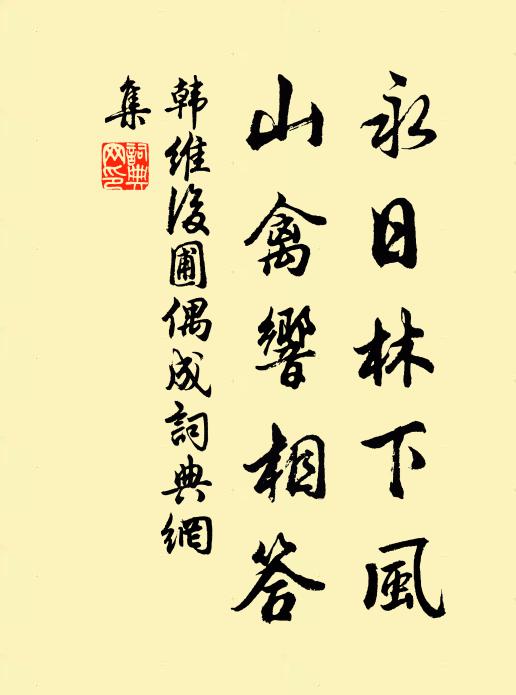 永日林下風
山禽響相答
韩維後圃偶成詞典網
集
詞典
网印